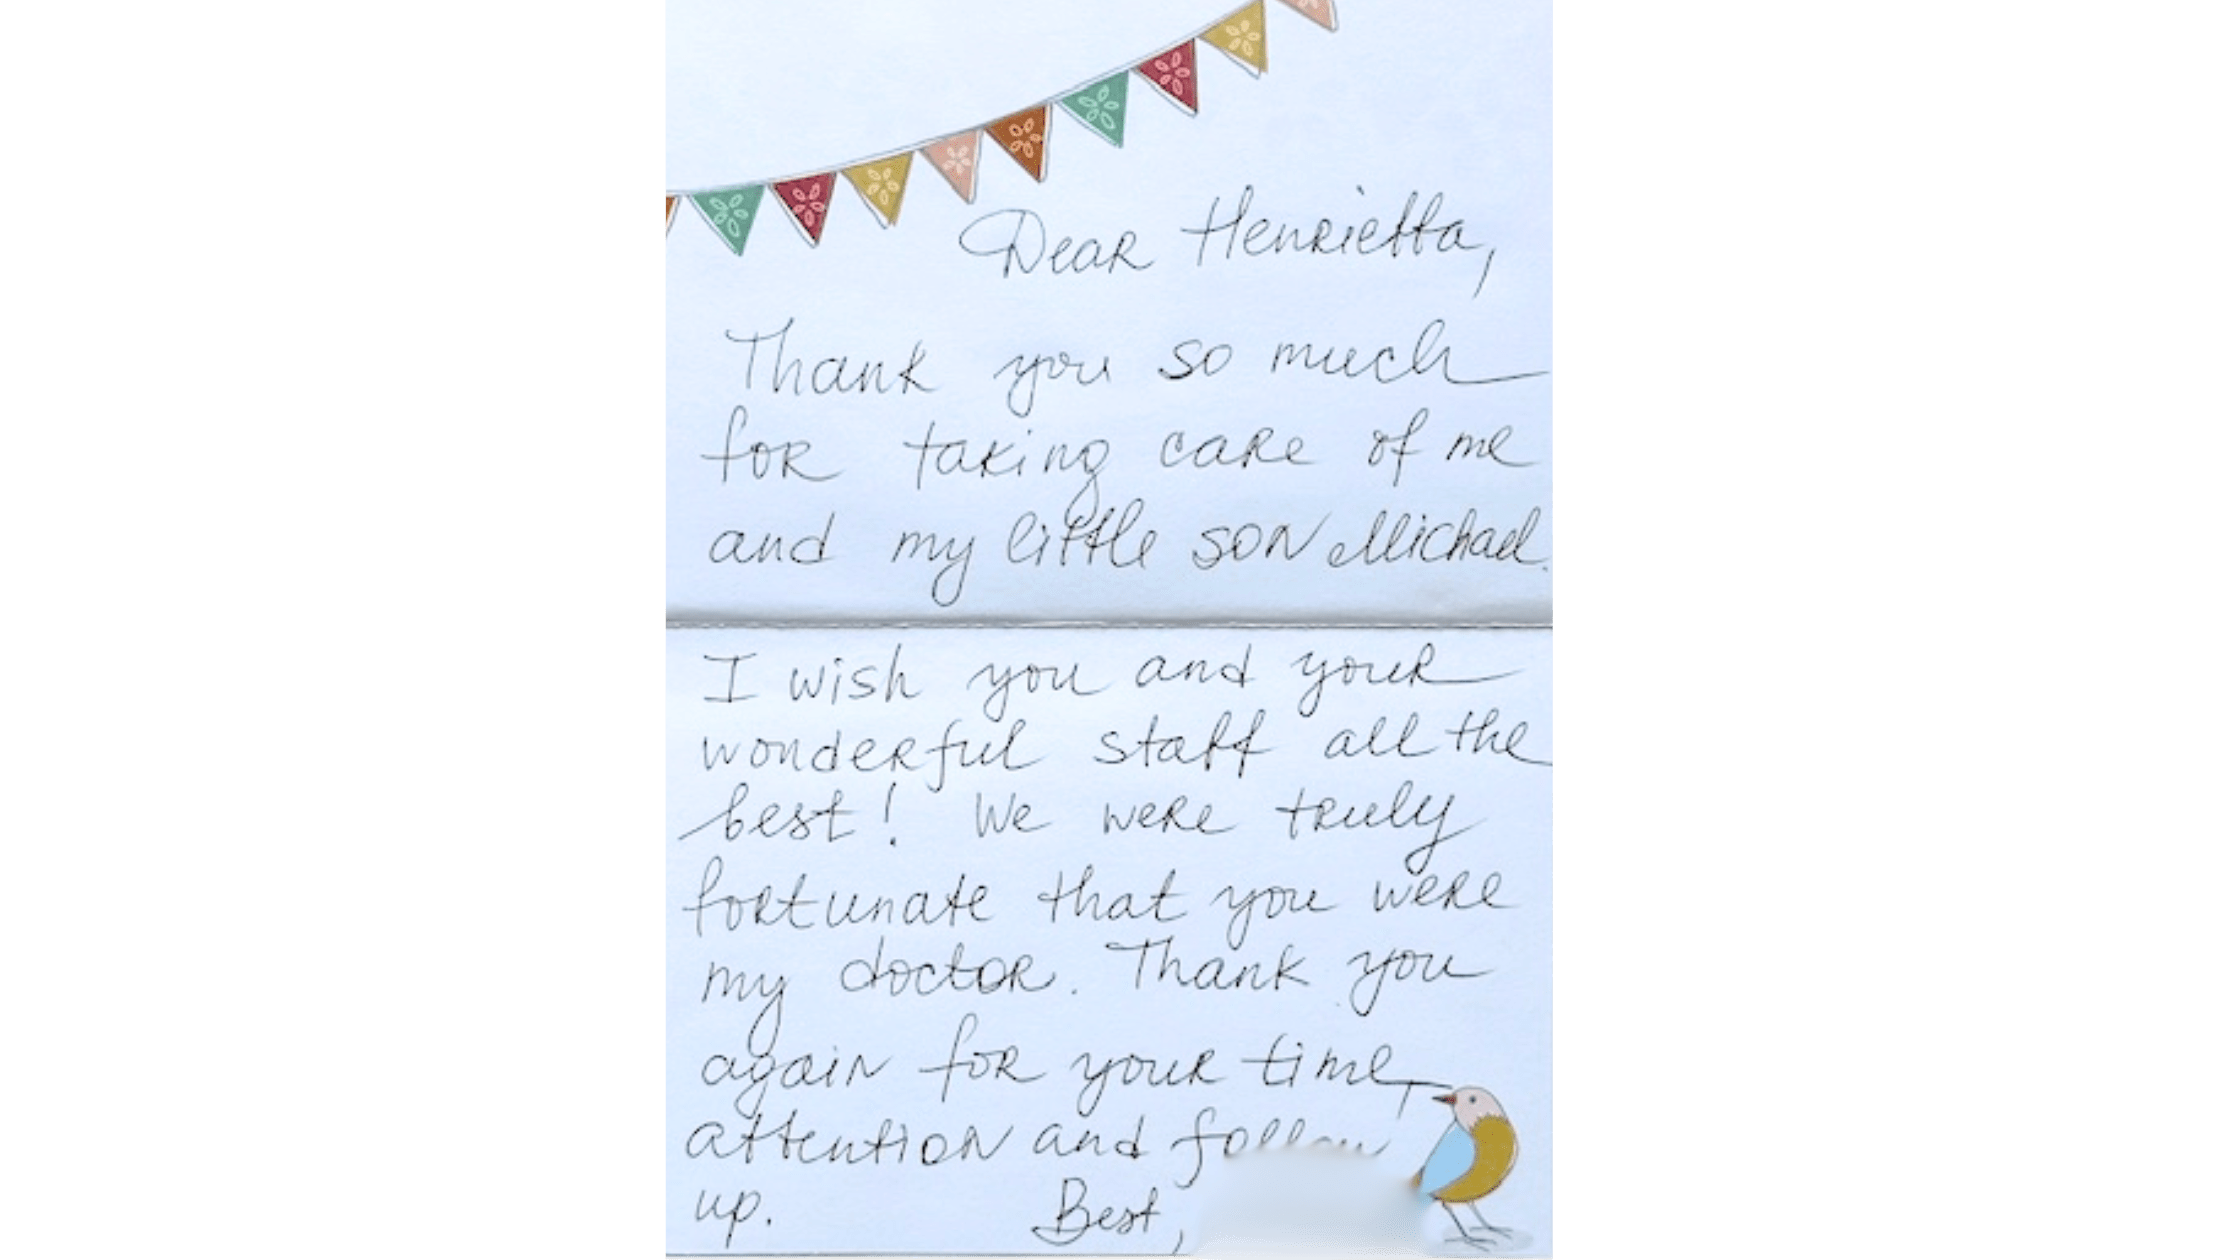 Dear Henrietta,
Thank you so much
for taking care of me
and my little son Michael.
I wish you and your
wonderful staff all the
best! We were truly
fortunate that you were
my doctor. Thank you
again for your time,
attention and follow
up. Best,